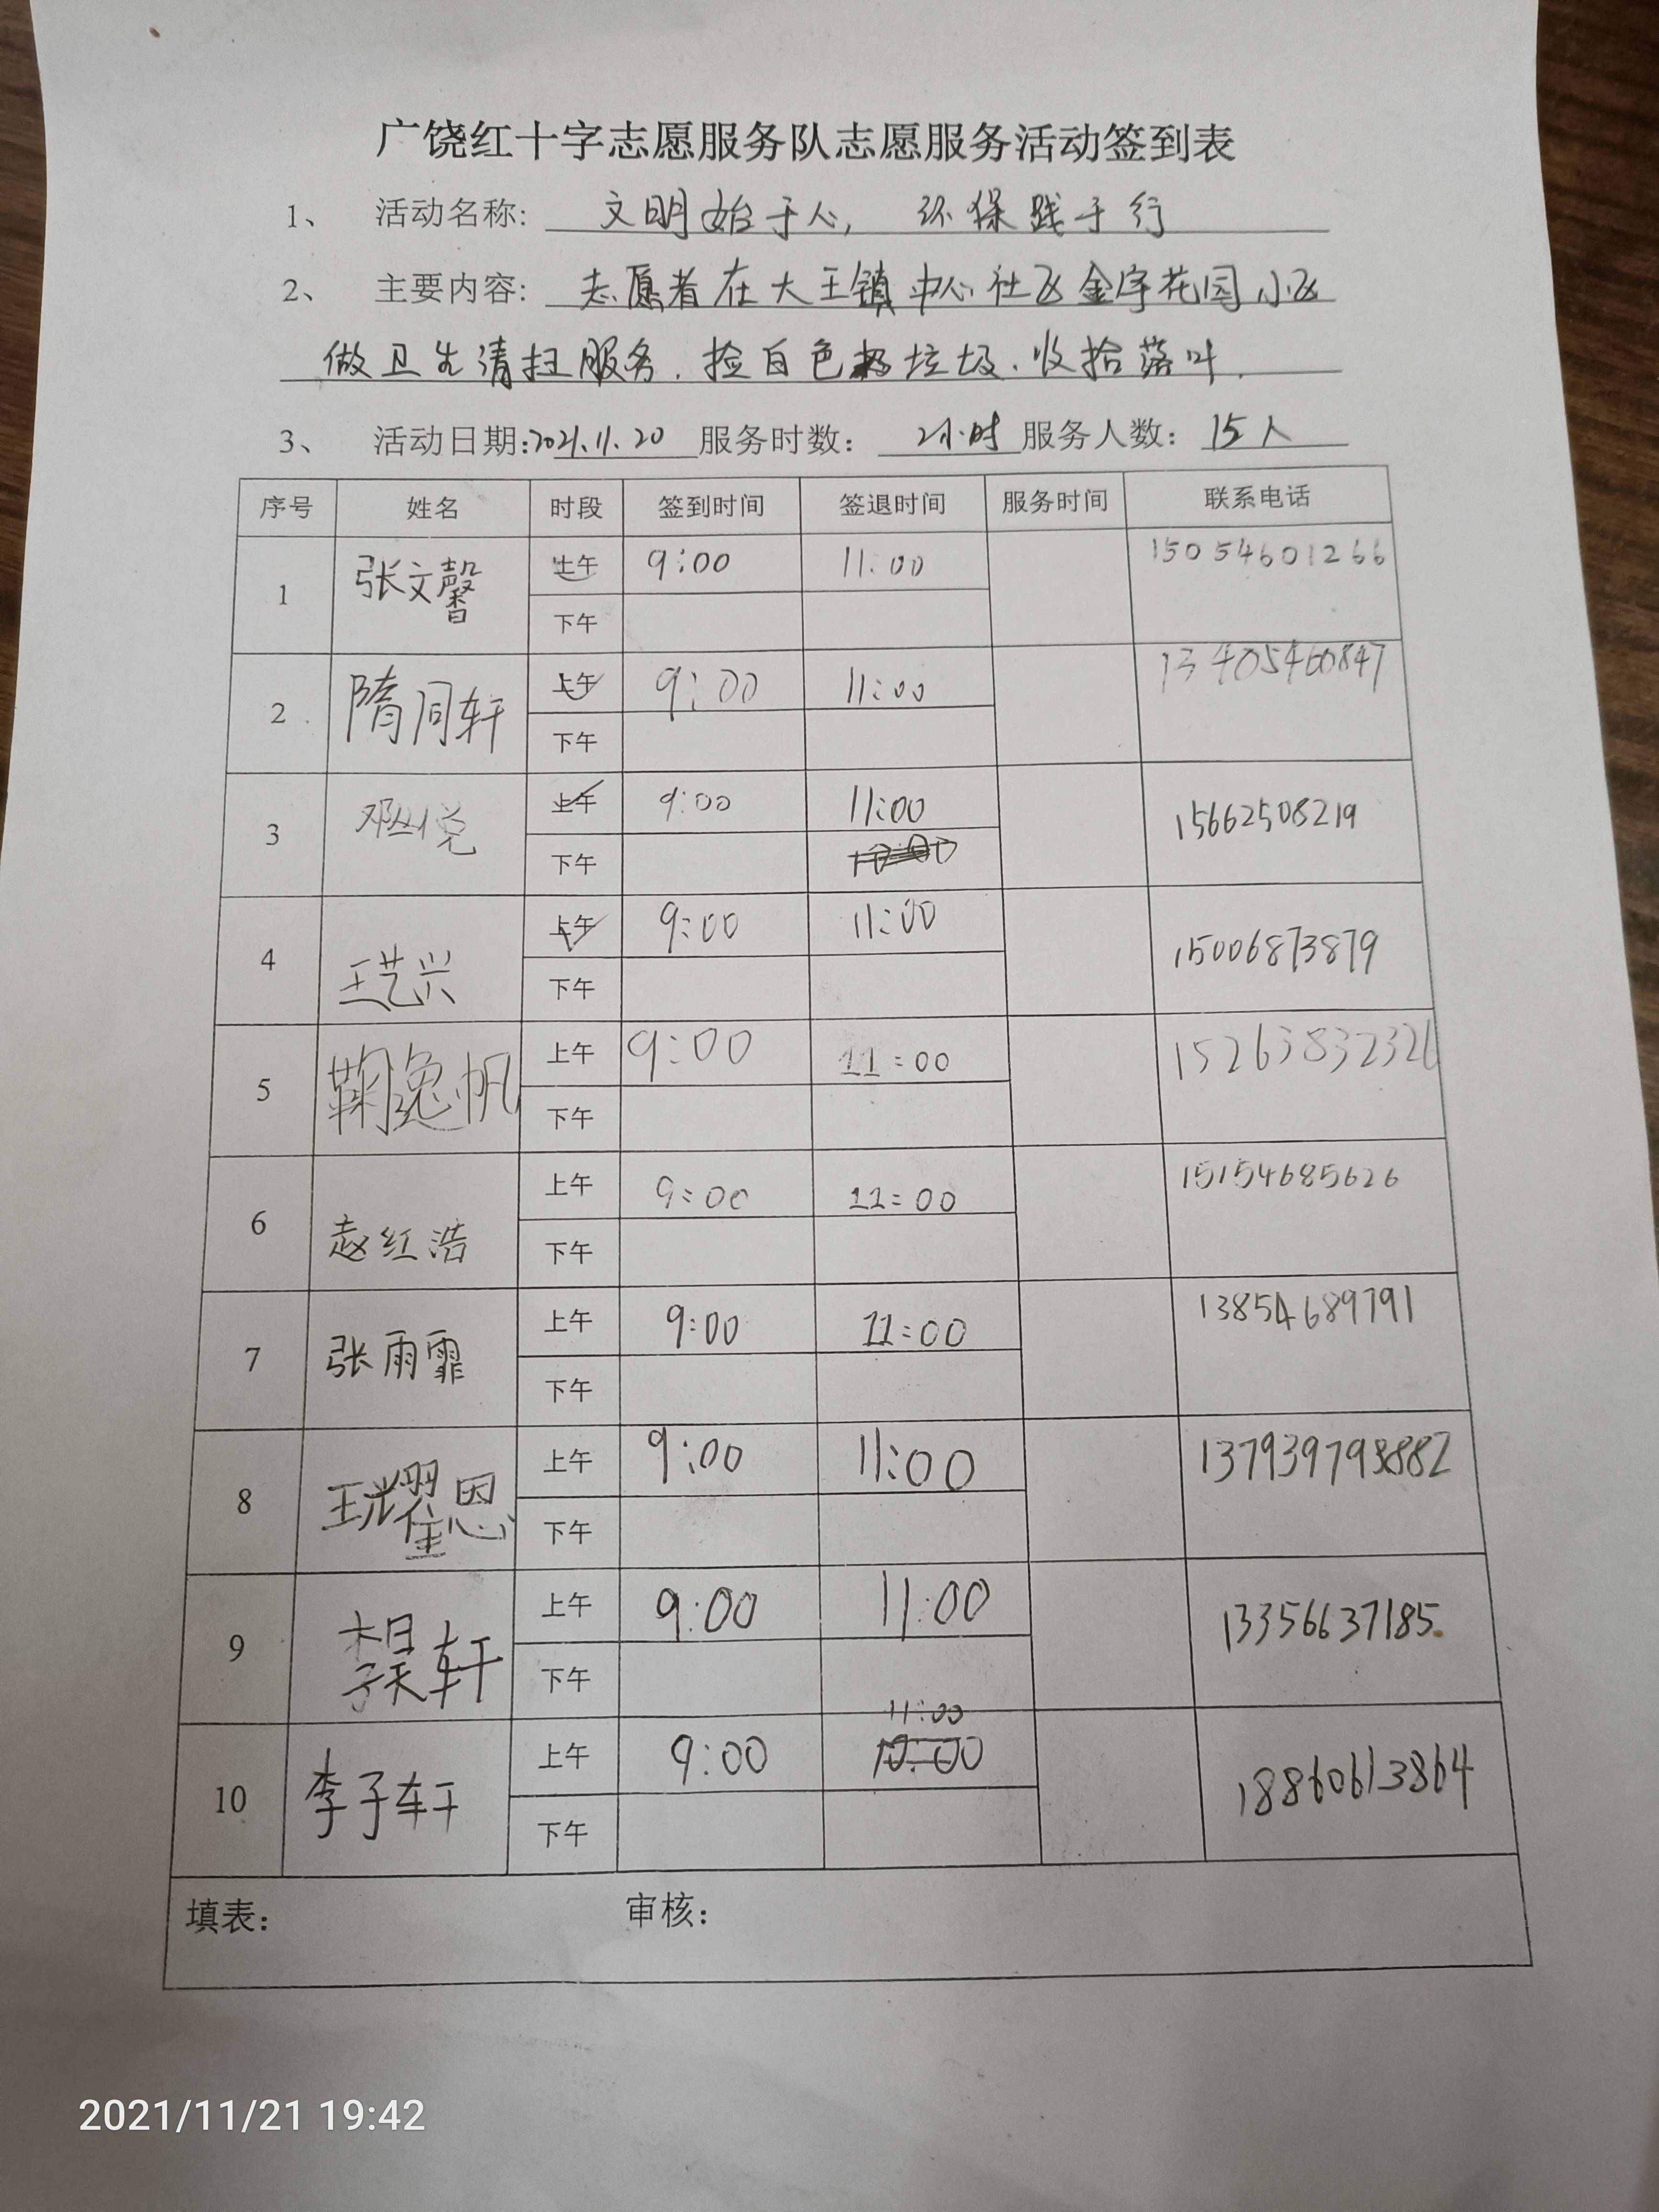 广饶红十字志愿服务队志愿服务活动签到表
1、 活动名称: 文明始于心, 环保践于行
2、 主要内容: 志愿者在大王镇中心社区金宇花园小区
做卫生清扫服务.捡白色垃圾.收拾落叶.
3、 活动日期:2021.11.20 服务时数: 2小时 服务人数: 15人
序号 姓名 时段 签到时间 签退时间 服务时间 联系电话
1 张文馨 上午 9:00 11:00 15054601266
下午
2 隋同轩 上午 9:00 11:00 13405460847
下午
3 邓悦 上午 9:00 11:00 15662508219
下午
4 王艺兴 上午 9:00 11:00 15006873879
下午
5 鞠逸帆 上午 9:00 11:00 15263832326
下午
6 赵红浩 上午 9:00 11:00 15154685626
下午
7 张雨霏 上午 9:00 11:00 13854689791
下午
8 王耀恩 上午 9:00 11:00 137939798882
下午
9 李昊轩 上午 9:00 11:00 13356637185.
下午
10 李子轩 上午 9:00 11:00 18860613864
下午
填表: 审核:
2021/11/21 19:42